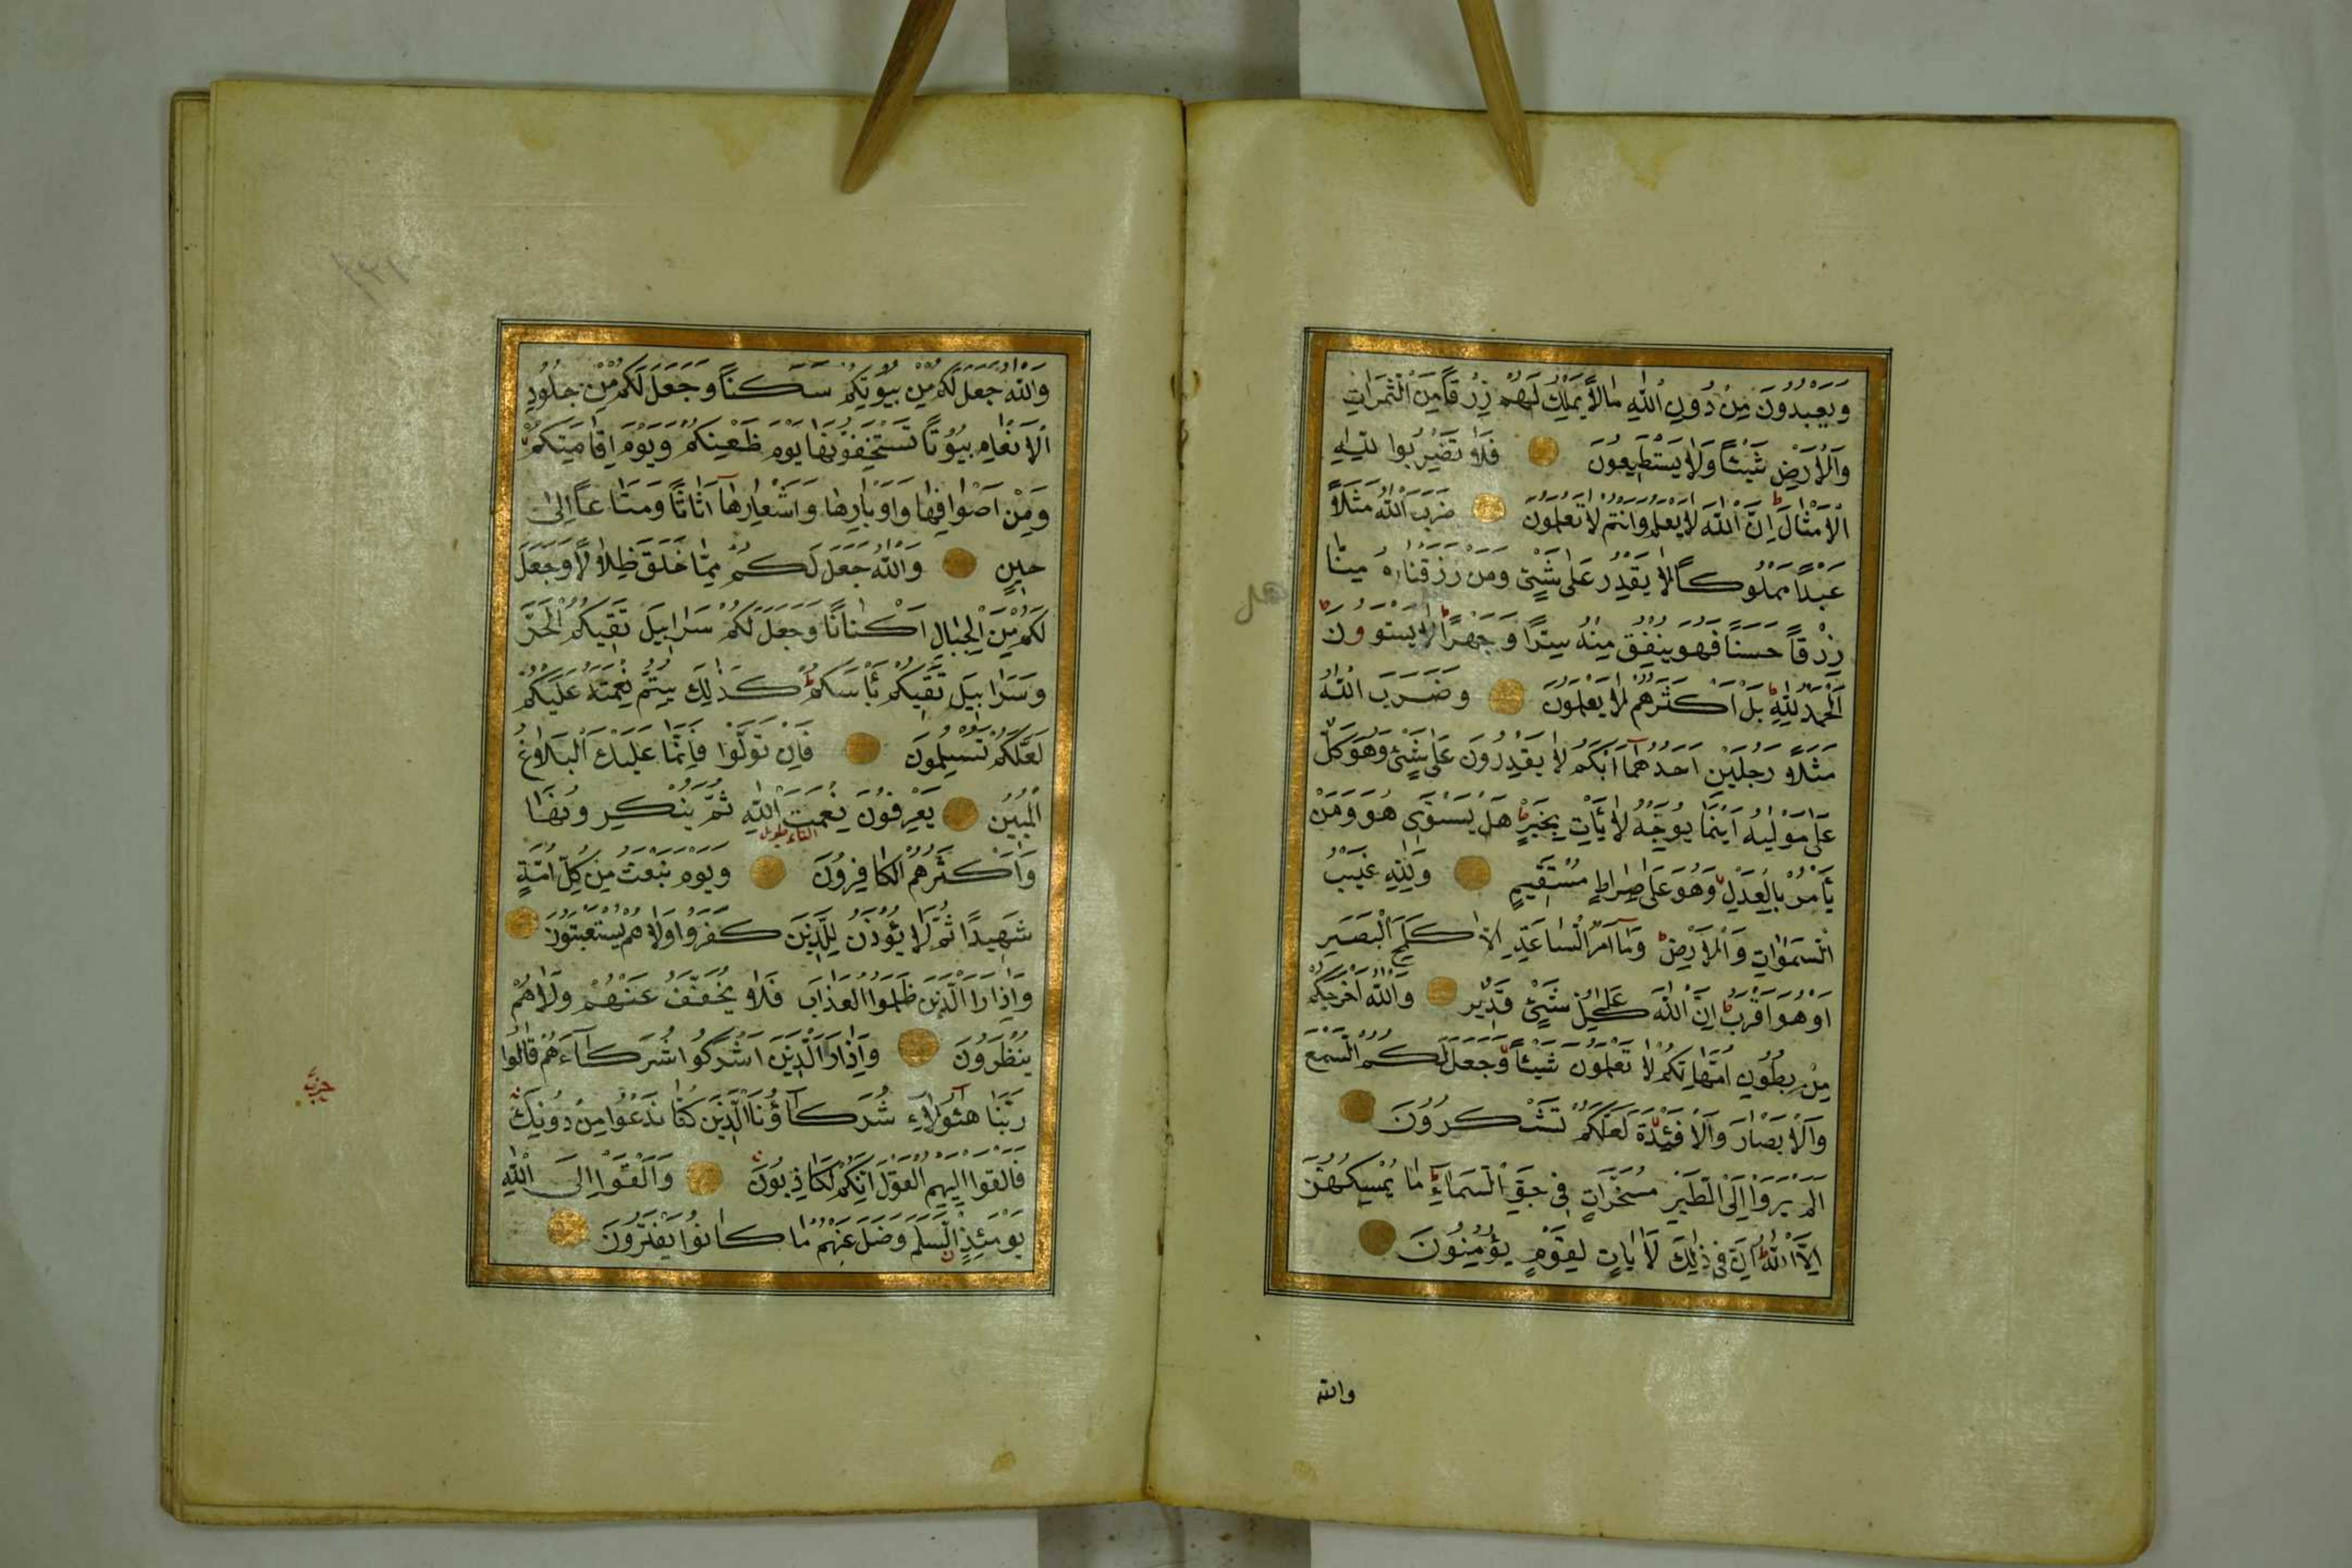 وَيَعْبُدُونَ مِنْ دُونِ اللّٰهِ مَالَا يَمْلِكُ لَهُمْ رِزْقًا مِنَ الثَّمَرَاتِ
وَالْاَرْضِ شَيْئًا وَلَا يَسْتَطِيعُونَ فَلَا تَضْرِبُوا لِلّٰهِ
الْاَمْثَالَ اِنَّ اللّٰهَ لَا يَعْلَمُ وَانْتُمْ لَا تَعْلَمُونَ ضَرَبَ اللّٰهُ مَثَلًا
عَبْدًا مَمْلُوكًا لَا يَقْدِرُ عَلٰى شَيْئٍ وَمَنْ رَزَقْنَاهُ مِنَّا
رِزْقًا حَسَنًا فَهُوَ يُنْفِقُ مِنْهُ سِرًّا وَجَهْرًا لَا يَسْتَوُونَ
اَلْحَمْدُ لِلّٰهِ بَلْ اَكْثَرُهُمْ لَا يَعْلَمُونَ وَضَرَبَ اللّٰهُ
مَثَلًا رَجُلَيْنِ اَحَدُهُمَا اَبْكَمُ لَا يَقْدِرُونَ عَلٰى شَيْئٍ وَهُوَ كَلٌّ
عَلٰى مَوْلٰيهُ اَيْنَمَا يُوَجِّهْهُ لَا يَأْتِ بِخَيْرٍ هَلْ يَسْتَوِى هُوَ وَمَنْ
يَأْمُرُ بِالْعَدْلِ وَهُوَ عَلٰى صِرَاطٍ مُسْتَقِيمٍ وَلِلّٰهِ غَيْبُ
السَّمٰوَاتِ وَالْاَرْضِ وَمَا اَمْرُ السَّاعَةِ اِلَّا كَلَمْحِ الْبَصَرِ
اَوْ هُوَ اَقْرَبُ اِنَّ اللّٰهَ عَلٰى كُلِّ شَيْئٍ قَدِيرٌ وَاللّٰهُ اَخْرَجَكُمْ
مِنْ بُطُونِ اُمَّهَاتِكُمْ لَا تَعْلَمُونَ شَيْئًا وَجَعَلَ لَكُمُ السَّمْعَ
وَالْاَبْصَارَ وَالْاَفْئِدَةَ لَعَلَّكُمْ تَشْكُرُونَ
اَلَمْ يَرَوْا اِلَى الطَّيْرِ مُسَخَّرَاتٍ فِى جَوِّ السَّمَاءِ مَا يُمْسِكُهُنَّ
اِلَّا اللّٰهُ اِنَّ فِى ذٰلِكَ لَاٰيَاتٍ لِقَوْمٍ يُؤْمِنُونَ
والله
هل
وَاللّٰهُ جَعَلَ لَكُمْ مِنْ بُيُوتِكُمْ سَكَنًا وَجَعَلَ لَكُمْ مِنْ جُلُودِ
الْاَنْعَامِ بُيُوتًا تَسْتَخِفُّونَهَا يَوْمَ ظَعْنِكُمْ وَيَوْمَ اِقَامَتِكُمْ
وَمِنْ اَصْوَافِهَا وَاَوْبَارِهَا وَاَشْعَارِهَا اَثَاثًا وَمَتَاعًا اِلٰى
حِينٍ وَاللّٰهُ جَعَلَ لَكُمْ مِمَّا خَلَقَ ظِلَالًا وَجَعَلَ
لَكُمْ مِنَ الْجِبَالِ اَكْنَانًا وَجَعَلَ لَكُمْ سَرَابِيلَ تَقِيكُمُ الْحَرَّ
وَسَرَابِيلَ تَقِيكُمْ بَأْسَكُمْ كَذٰلِكَ يُتِمُّ نِعْمَتَهُ عَلَيْكُمْ
لَعَلَّكُمْ تُسْلِمُونَ فَاِنْ تَوَلَّوْا فَاِنَّمَا عَلَيْكَ الْبَلَاغُ
الْمُبِينُ يَعْرِفُونَ نِعْمَتَ اللّٰهِ ثُمَّ يُنْكِرُونَهَا
التاء طويل
وَاَكْثَرُهُمُ الْكَافِرُونَ وَيَوْمَ نَبْعَثُ مِنْ كُلِّ اُمَّةٍ
شَهِيدًا ثُمَّ لَا يُؤْذَنُ لِلَّذِينَ كَفَرُوا وَلَا هُمْ يُسْتَعْتَبُونَ
وَاِذَا رَاَ الَّذِينَ ظَلَمُوا الْعَذَابَ فَلَا يُخَفَّفُ عَنْهُمْ وَلَا هُمْ
يُنْظَرُونَ وَاِذَا رَاَ الَّذِينَ اَشْرَكُوا شُرَكَاءَهُمْ قَالُوا
رَبَّنَا هٰؤُلَاءِ شُرَكَاؤُنَا الَّذِينَ كُنَّا نَدْعُوا مِنْ دُونِكَ
فَاَلْقَوْا اِلَيْهِمُ الْقَوْلَ اِنَّكُمْ لَكَاذِبُونَ وَاَلْقَوْا اِلَى اللّٰهِ
يَوْمَئِذٍ السَّلَمَ وَضَلَّ عَنْهُمْ مَا كَانُوا يَفْتَرُونَ
حزب